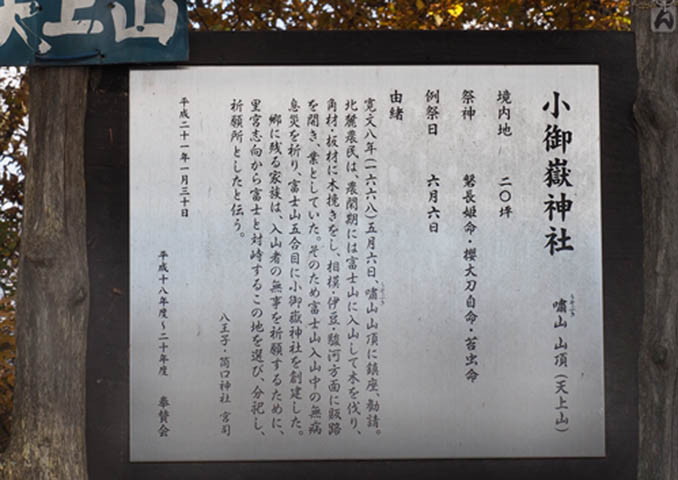 天上山
小御嶽神社
嘯山 山頂(天上山)
うそぶき
境内地 二〇坪
祭神 磐長姫命・櫻大刀自命・苔虫命
例祭日 六月六日
由緒
寛文八年(一六六八)五月六日、嘯山山頂に鎮座、勧請。
うそぶき
北麓農民は、農閑期には富士山に入山して木を伐り、
角材・板材に木挽きをし、相模・伊豆・駿河方面に販路
を開き、業としていた。そのため富士山入山中の無病
息災を祈り、富士山五合目に小御嶽神社を創建した。
郷に残る家族は、入山者の無事を祈願するために、
里宮志向から富士と対峙するこの地を選び、分祀し、
祈願所としたと伝う。
八王子・筒口神社 宮司
平成二十一年一月三十日
平成十八年度~二十年度 奉賛会